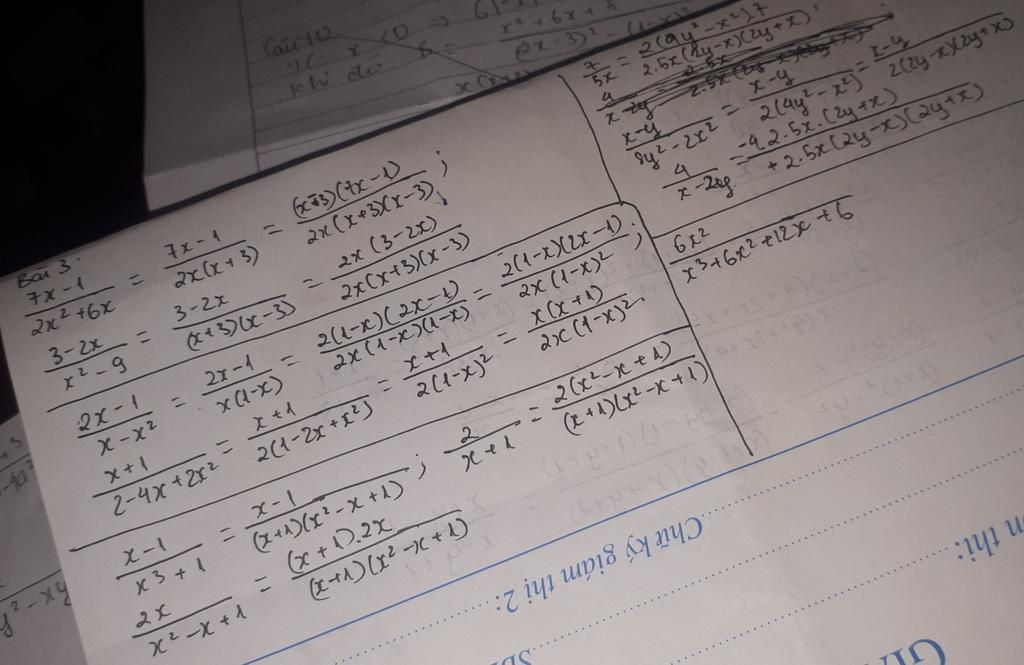 Bài 3:
\frac{7x-1}{2x^2+6x} = \frac{7x-1}{2x(x+3)} = \frac{(x+3)(7x-1)}{2x(x+3)(x-3)};
\frac{3-2x}{x^2-9} = \frac{3-2x}{(x+3)(x-3)} = \frac{2x(3-2x)}{2x(x+3)(x-3)}
\frac{2x-1}{x-x^2} = \frac{2x-1}{x(1-x)} = \frac{2(1-x)(2x-1)}{2x(1-x)(1-x)} = \frac{2(1-x)(2x-1)}{2x(1-x)^2};
\frac{x+1}{2-4x+2x^2} = \frac{x+1}{2(1-2x+x^2)} = \frac{x+1}{2(1-x)^2} = \frac{x(x+1)}{2x(1-x)^2}.
\frac{x-1}{x^3+1} = \frac{x-1}{(x+1)(x^2-x+1)}; \frac{2}{x+1} = \frac{2(x^2-x+1)}{(x+1)(x^2-x+1)}
\frac{2x}{x^2-x+1} = \frac{(x+1).2x}{(x+1)(x^2-x+1)}
\frac{x-y}{8y^2-2x^2} = \frac{x-y}{2(4y^2-x^2)} = \frac{x-y}{2(2y-x)(2y+x)}
\frac{4}{x-2y} = \frac{-4.2.5x.(2y+x)}{+2.5x(2y-x)(2y+x)}
\frac{6x^2}{x^3+6x^2+12x+6}
Chữ ký giám thị 2: